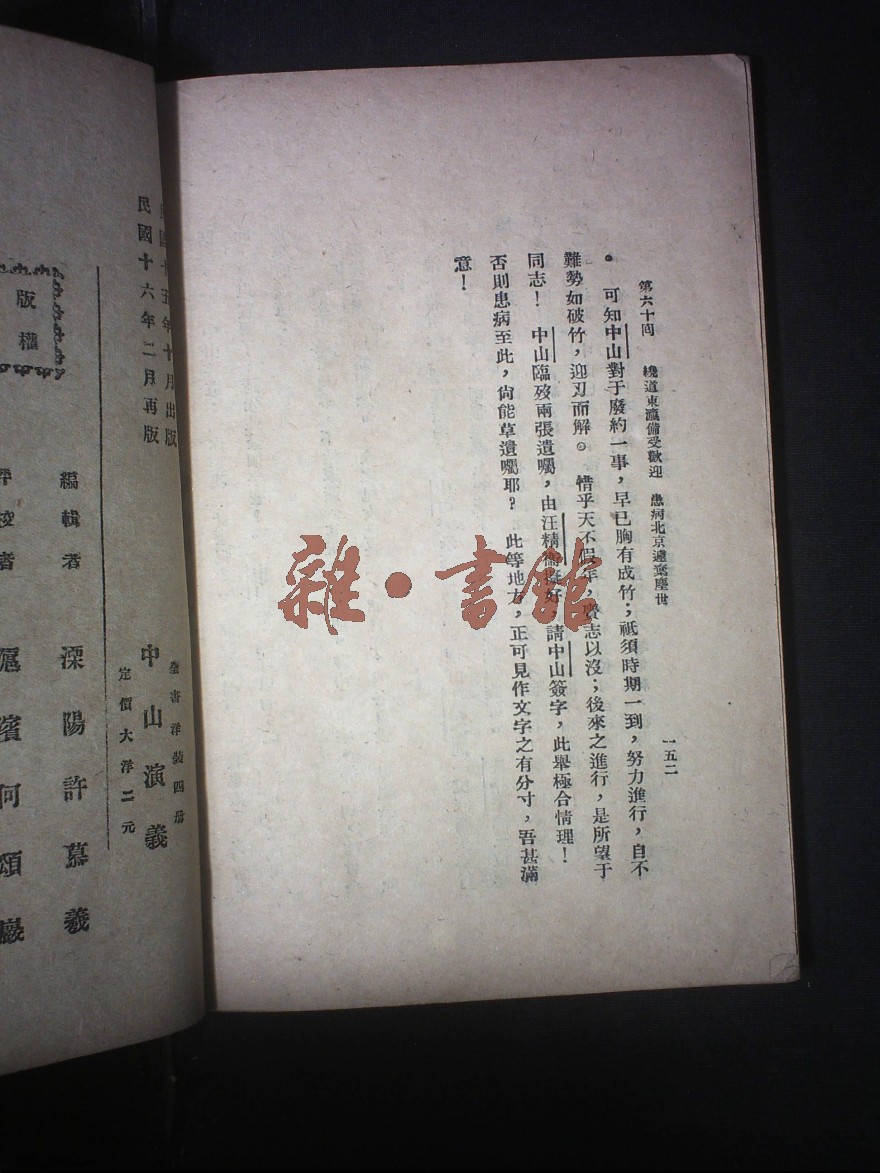 第六十回 繞道東瀛備受歡迎 患病北京遽棄塵世
一五二
。可知中山對于廢約一事，早已胸有成竹；祗須時期一到，努力進行，自不
難勢如破竹，迎刃而解。惜乎天不假年，賫志以沒；後來之進行，是所望于
同志！中山臨歿兩張遺囑，由汪精衛擬好，請中山簽字，此舉極合情理！
否則患病至此，尙能草遺囑耶？此等地方，正可見作文字之有分寸，吾甚滿
意！
雜·書館
民國十五年十月出版
民國十六年二月再版
全書洋裝四册
中山演義
定價大洋二元
編輯者 溧陽許慕羲
評校者 滬濱何頌巖
版權